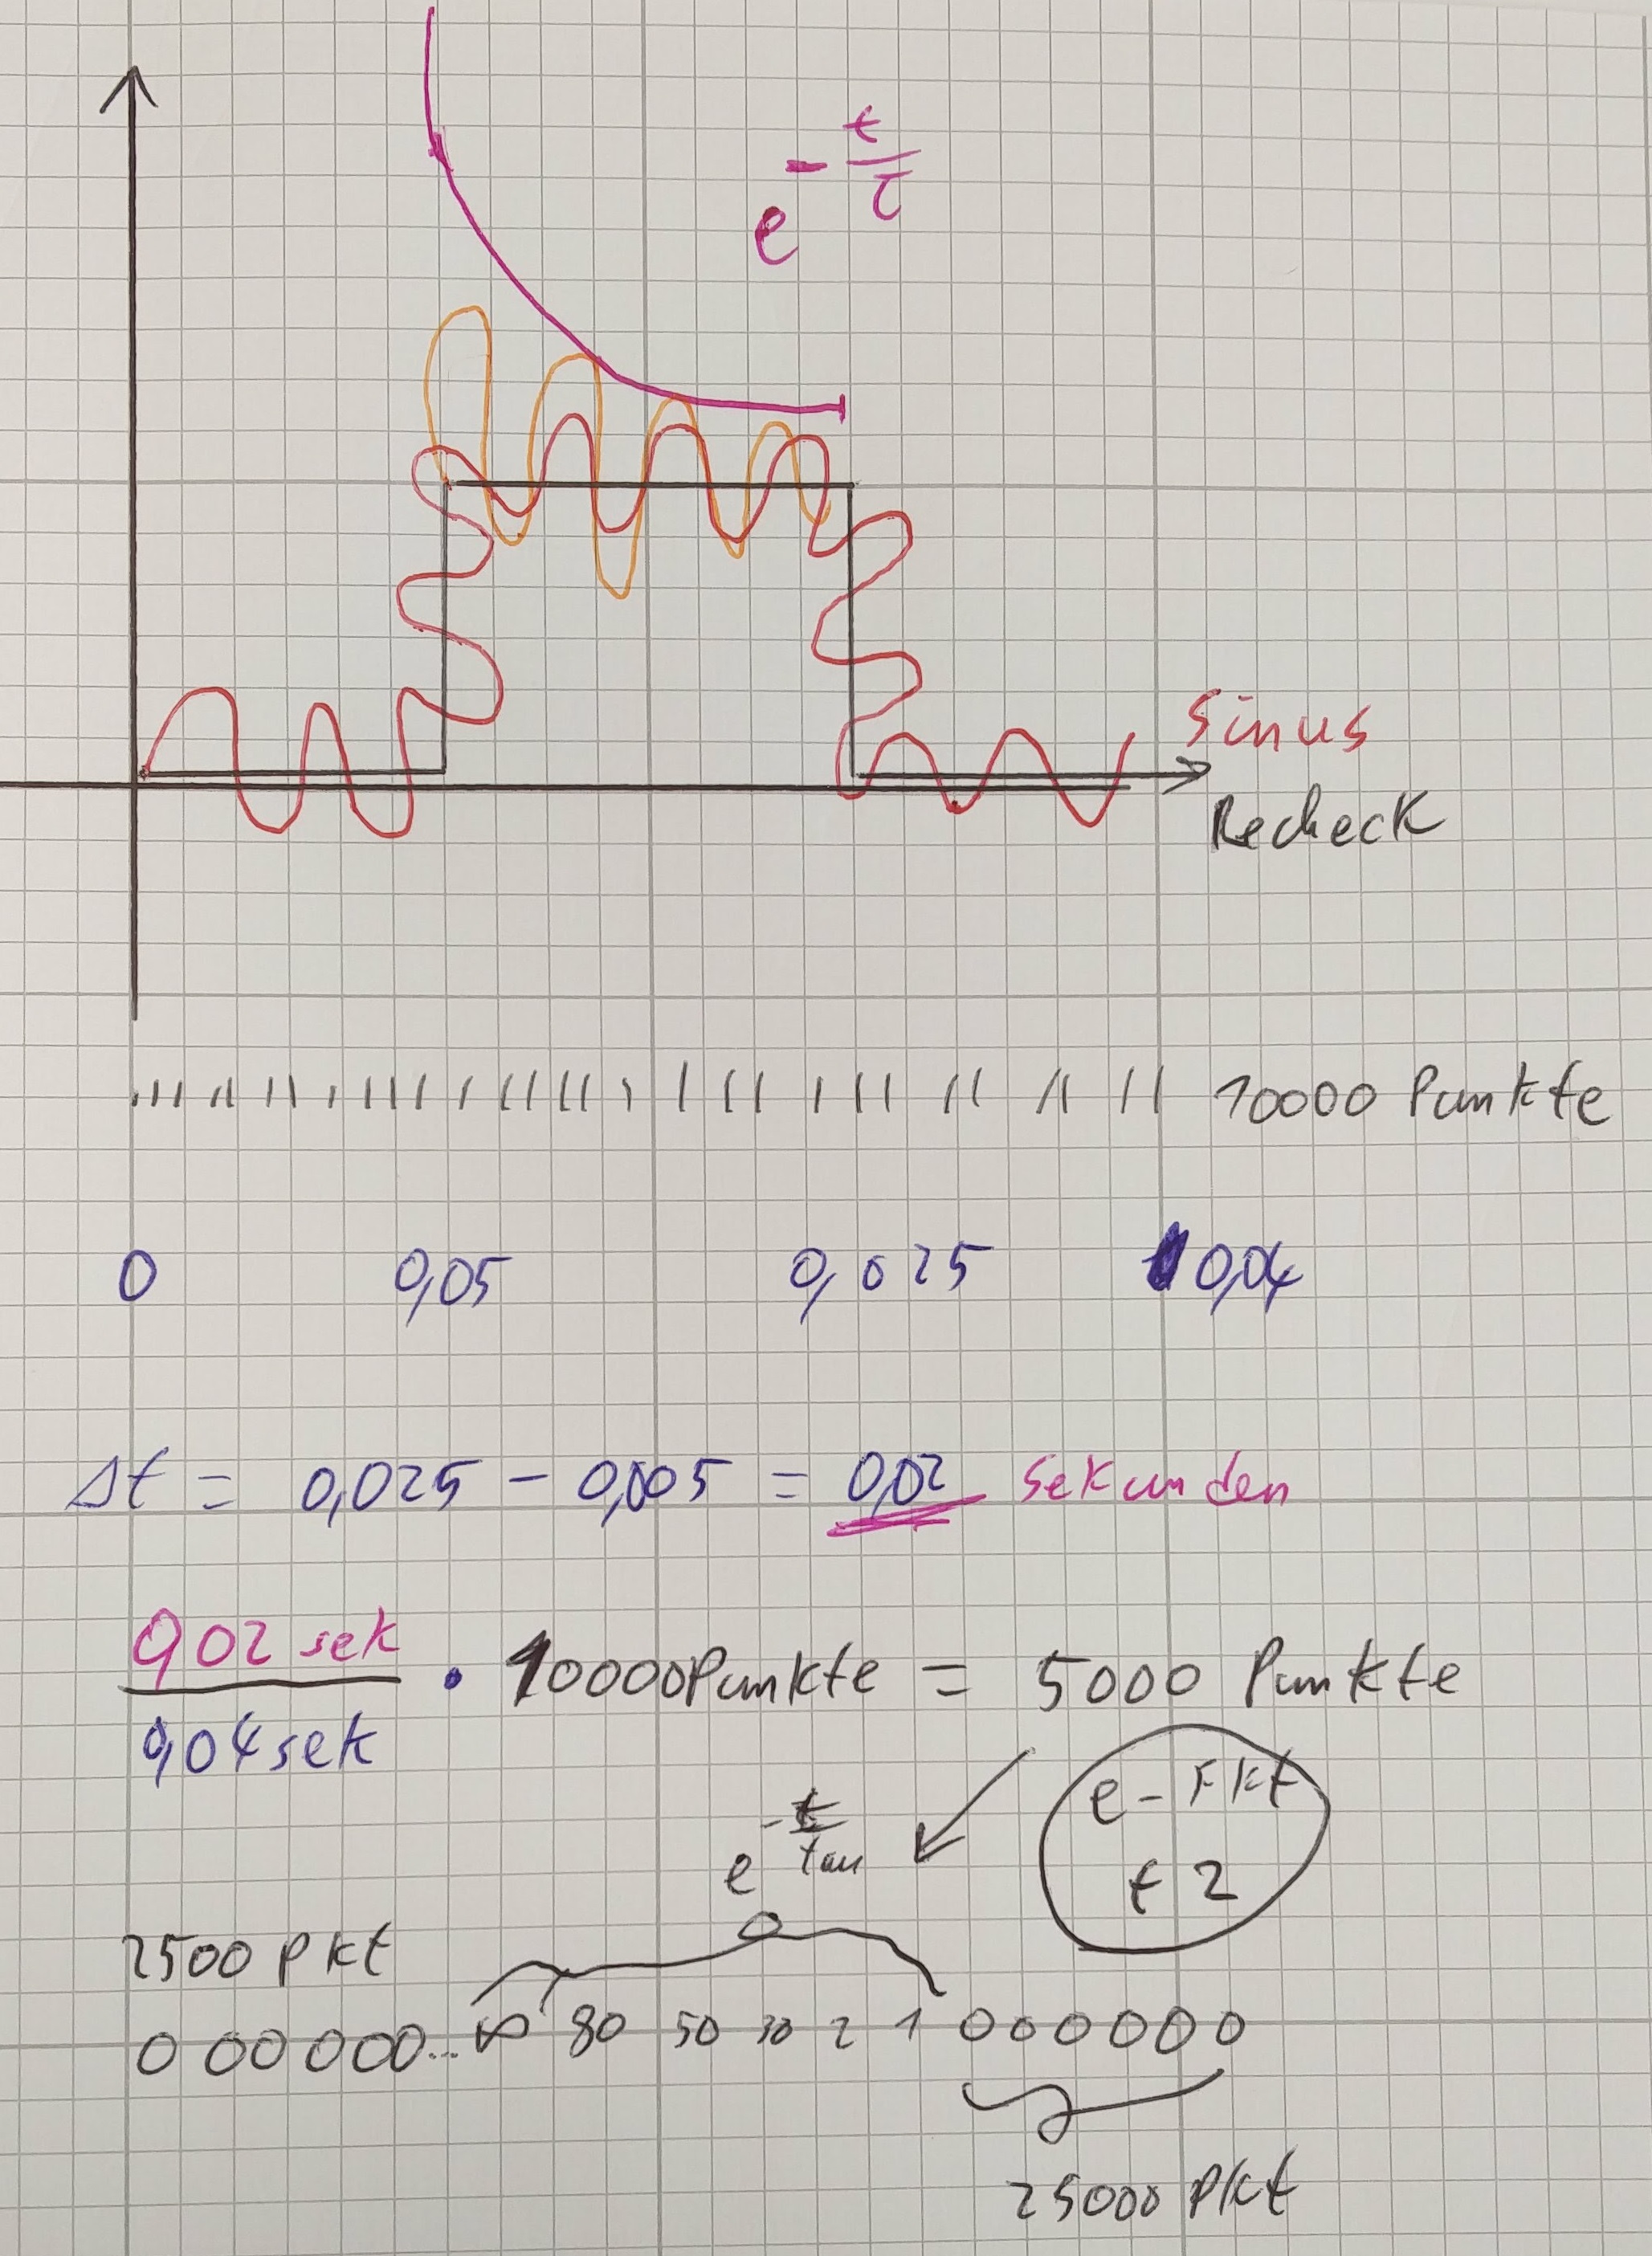 e^{-t/τ}
Sinus
Recheck
10000 Punkte
0 0,05 0,025 0,04
Δt = 0,025 - 0,005 = 0,02 Sekunden
0,02 sek / 0,04 sek · 10000 Punkte = 5000 Punkte
e-Fkt
t2
e^{-t/tau}
2500 Pkt
0 00 000... ∞ 80 50 30 2 1 000000
25000 Pkt